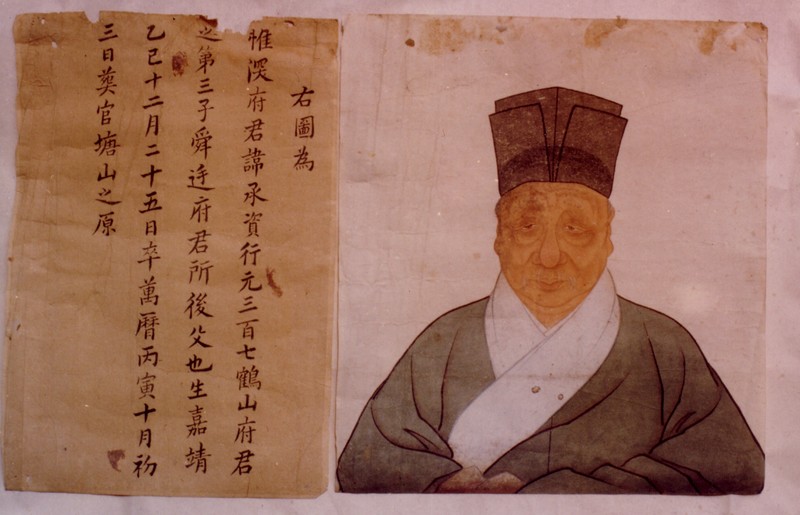 右圖為
惟深府君諱承資行元三百七鶴山府君
之第三子舜府君所後父也生嘉靖
乙巳十二月二十五日卒萬曆丙寅十月初
三日葬官塘山之原